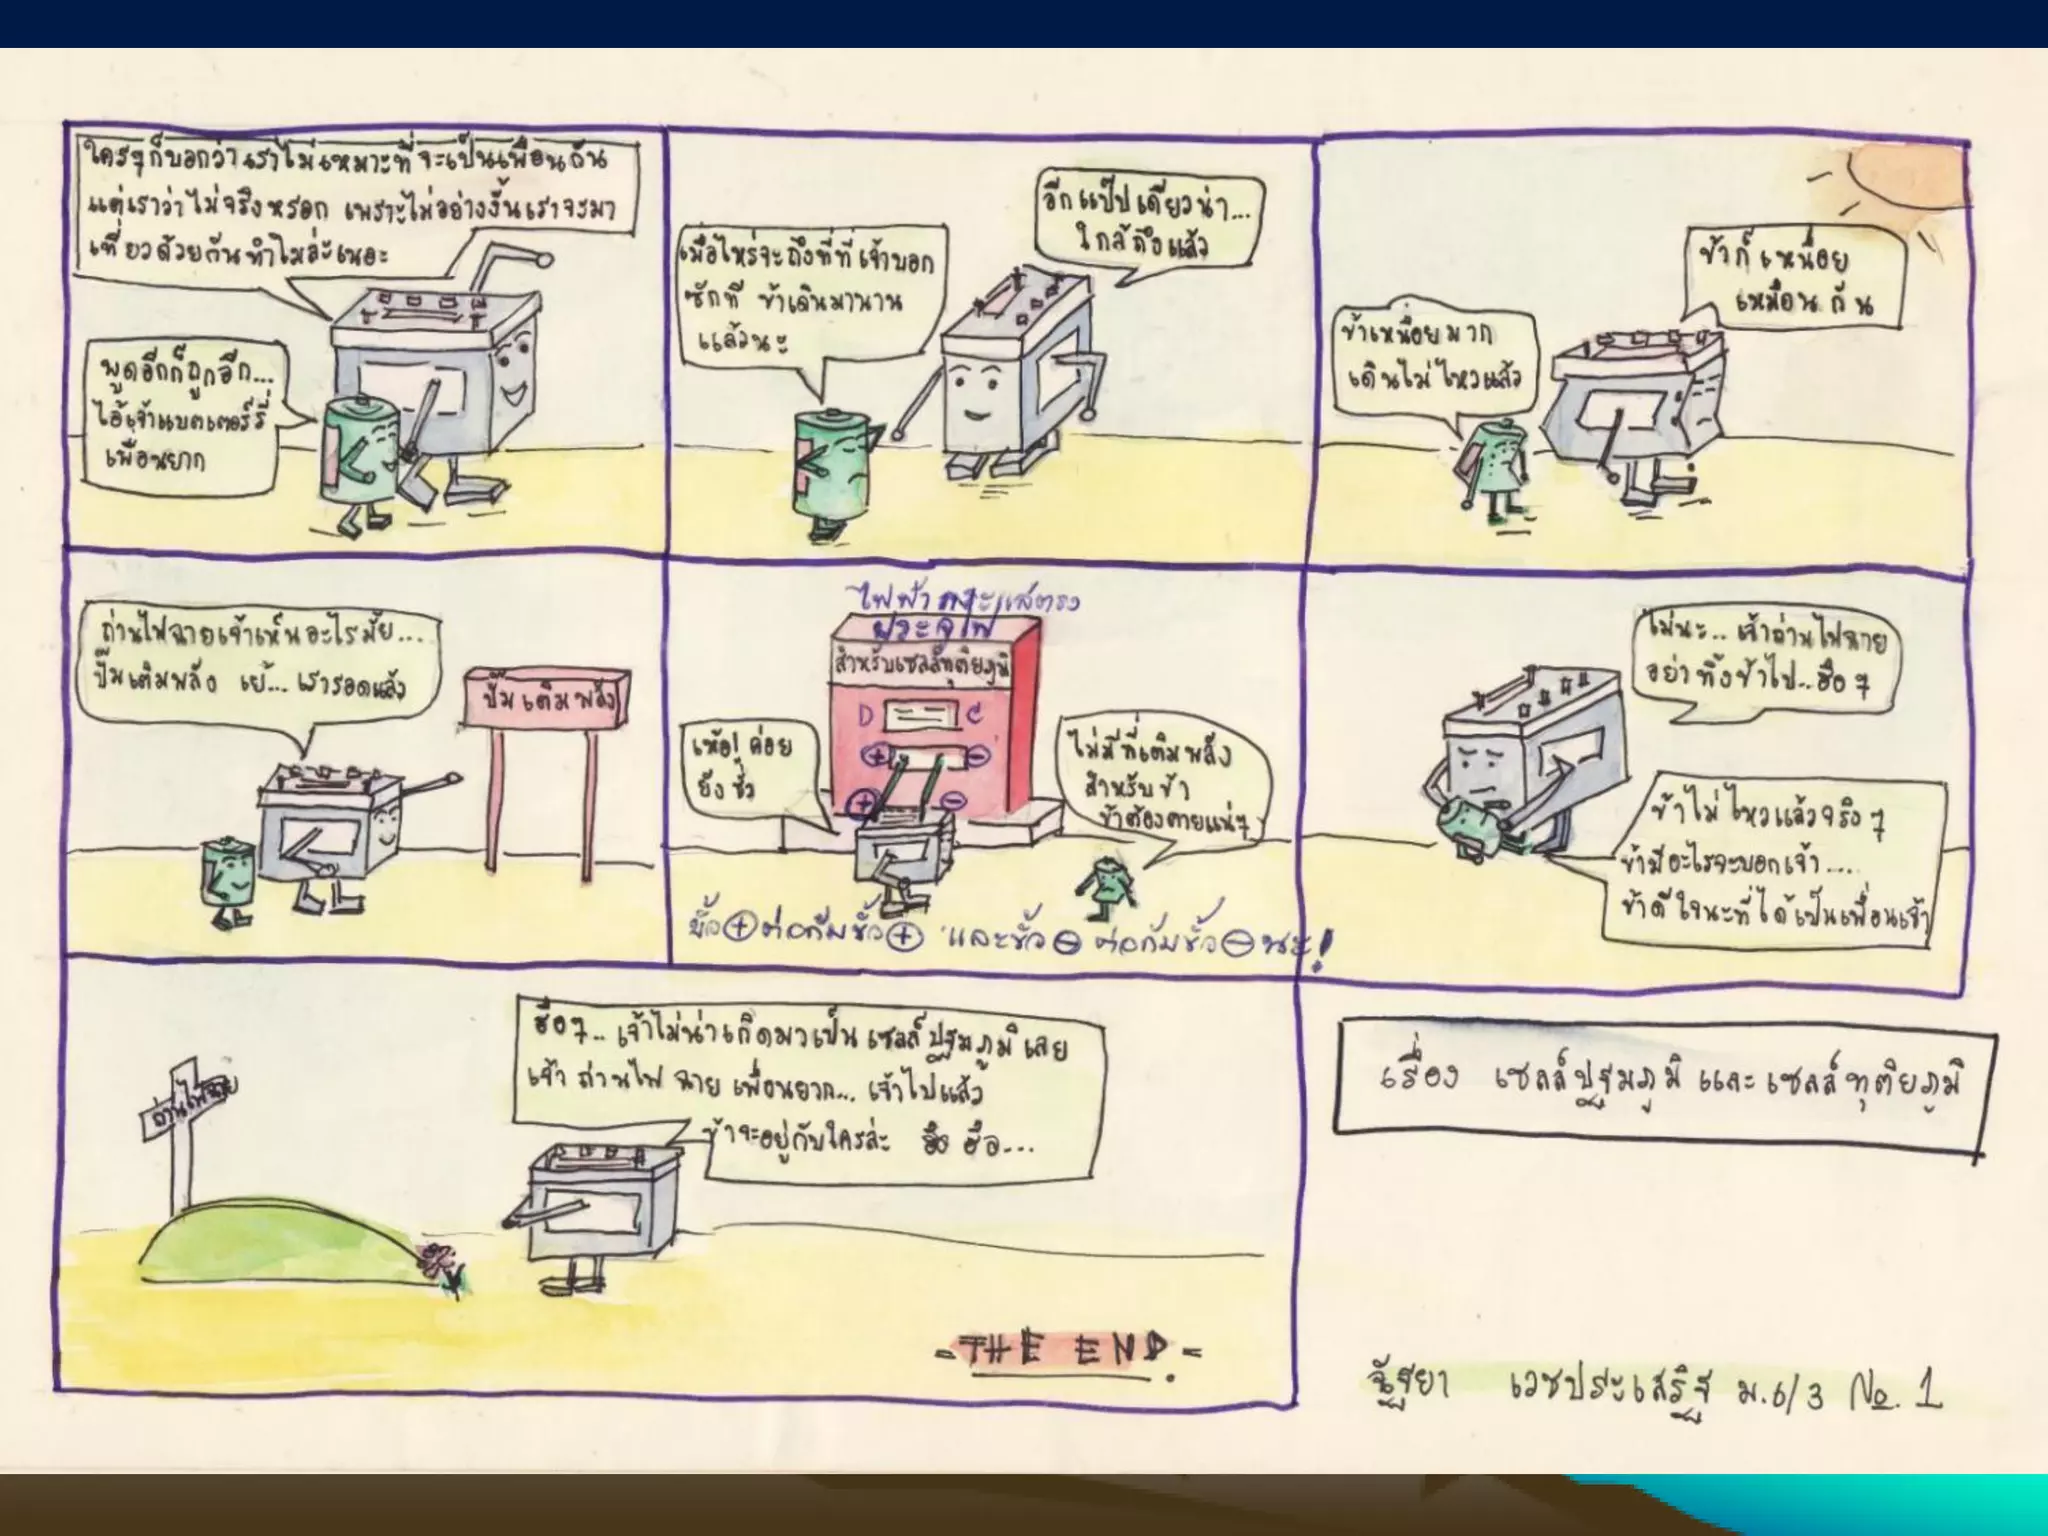 ใครๆก็บอกว่าเราไม่เหมาะที่จะเป็นเพื่อนกัน
แต่เราว่าไม่จริงหรอก เพราะไม่อย่างงั้นเราจะมา
เที่ยวด้วยกันทำไมล่ะเนอะ
พูดอีกก็ถูกอีก...
ไอ้เจ้าแบตเตอร์รี่
เพื่อนยาก
อีกแป๊ปเดียวน่า...
ใกล้ถึงแล้ว
เมื่อไหร่จะถึงที่ที่เจ้าบอก
ซักที ข้าเดินมานาน
แล้วนะ
ข้าก็เหนื่อย
เหมือนกัน
ข้าเหนื่อยมาก
เดินไม่ไหวแล้ว
ถ่านไฟฉายเจ้าเห็นอะไรมั้ย....
ปั๊มเติมพลัง เย้... เรารอดแล้ว
ปั๊มเติมพลัง
ไฟฟ้ากระแสตรง
ประจุไฟ
สำหรับเซลล์ทุติยภูมิ
D C
+ -
+ -
เห้อ! ค่อย
ยังชั่ว
ไม่มีที่เติมพลัง
สำหรับข้า
ข้าต้องตายแน่ๆ
ขั้ว ⊕ ต่อกับขั้ว ⊕ และขั้ว ⊖ ต่อกับขั้ว ⊖ นะ!
ไม่นะ.. เจ้าถ่านไฟฉาย
อย่าทิ้งข้าไป...ฮือๆ
ข้าไม่ไหวแล้วจริงๆ
ข้ามีอะไรจะบอกเจ้า....
ข้าดีใจนะที่ได้เป็นเพื่อนเจ้า
ถ่านไฟฉาย
ฮือๆ.. เจ้าไม่น่าเกิดมาเป็นเซลล์ปฐมภูมิเลย
เจ้าถ่านไฟฉายเพื่อนยาก... เจ้าไปแล้ว
ข้าจะอยู่กับใครล่ะ ฮึก ฮือ...
- THE END. -
เรื่อง เซลล์ปฐมภูมิและเซลล์ทุติยภูมิ
เวชประเสริฐ ม.6/3 No. 1